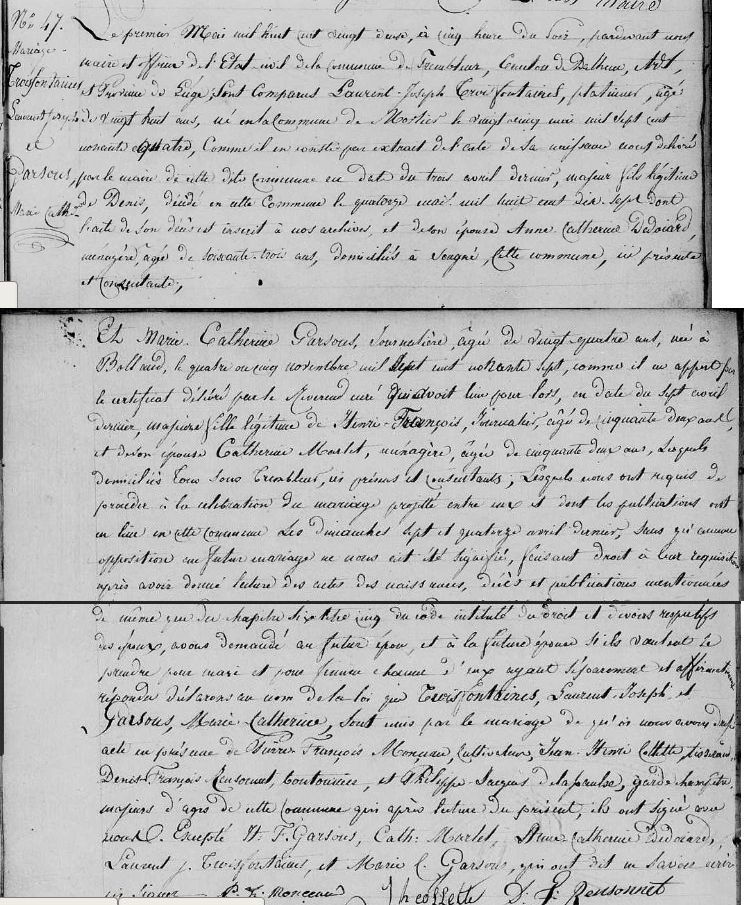 maire
No 47.
Mariage
Troisfontaines
Laurent Joseph
et
Garsous,
Marie Cath.
Le premier Mai mil huit cent vingt deux, à cinq heure du Soir, pardevant nous
maire et officier de l'Etat civil de la commune de Trembleur, Canton de Dalhem, Ardt,
et Province de Liége, Sont Comparus Laurent-Joseph Troisfontaines, platineur, âgé
de vingt huit ans, né en la Commune de Mortier le vingt cinq mai mil sept cent
nonante quatre, Comme il en conste par extrait de l'acte de Sa naissance nous délivré
par le maire de cette dite commune en dat du trois avril dernier, majeur fils légitime
de Denis, décédé en cette Commune le quatorze mai mil huit cent dix sept dont
l'acte de son décès est inscrit à nos archives, et de son épouse Anne Catherine Dedoiard,
menagère, agée de soixante-trois ans, domiciliés à cette commune, ici présente
et consentante,
Et Marie Catherine Garsous, Journalière, âgée de vingt quatre ans, née à
Bolland, le quatre ou cinq novembre mil sept cent nonante sept, comme il en appert par
le certificat délivré par le Reverend curé qui avoit lieu pour lors, en date du sept avril
dernier, majeure fille légitime de Henri-François, Journalier, âgé de cinquante deux ans,
et de son épouse Catherine Marlet, ménagère, âgée de cinquante deux ans, Lesquels
domiciliés Tous Sous Trembleur, ici présens et consentants; Lesquels nous ont requis de
procéder à la célébration du mariage projetté entre eux et dont les publications ont
eu lieu en cette commune Les dimanches sept et quatorze avril dernier, Sans qu'aucune
opposition au futur mariage ne nous ait été signifiée, faisant droit à leur requisition
après avoir donné lecture des actes des naissances, décès et publications mentionnées
de même que du chapitre Six titre cinq du code intitulé du Droit et devoirs respectifs
des époux, avons demandé au futur époux, et à la future épouse S'ils veulent se
prendre pour mari et pour femme chacune d'eux ayant séparement et affirmativement
répondu déclarons au nom de la loi que Troisfontaines, Laurent Joseph et
Garsous, Marie Catherine, sont unis par le mariage de qu'oi nous avons dressé
acte en présence de Pierre-François Monceau, Cultivateur, Jean-Henri Collette,
Denis-François Rensonnet, et Philippe-Jacques garde champêtre,
majeurs d'ages de cette Commune qui après lecture du présent, ils ont signé avec
nous. Excepté H. F. Garsous, Cath. Marlet, Anne Catherine Dedoiard,
Laurent J. Troisfontaines, et Marie C. Garsous, qui ont dit ne Savoir écrire
ni Signer P. F. Monceau J h collette D. F. Rensonnet